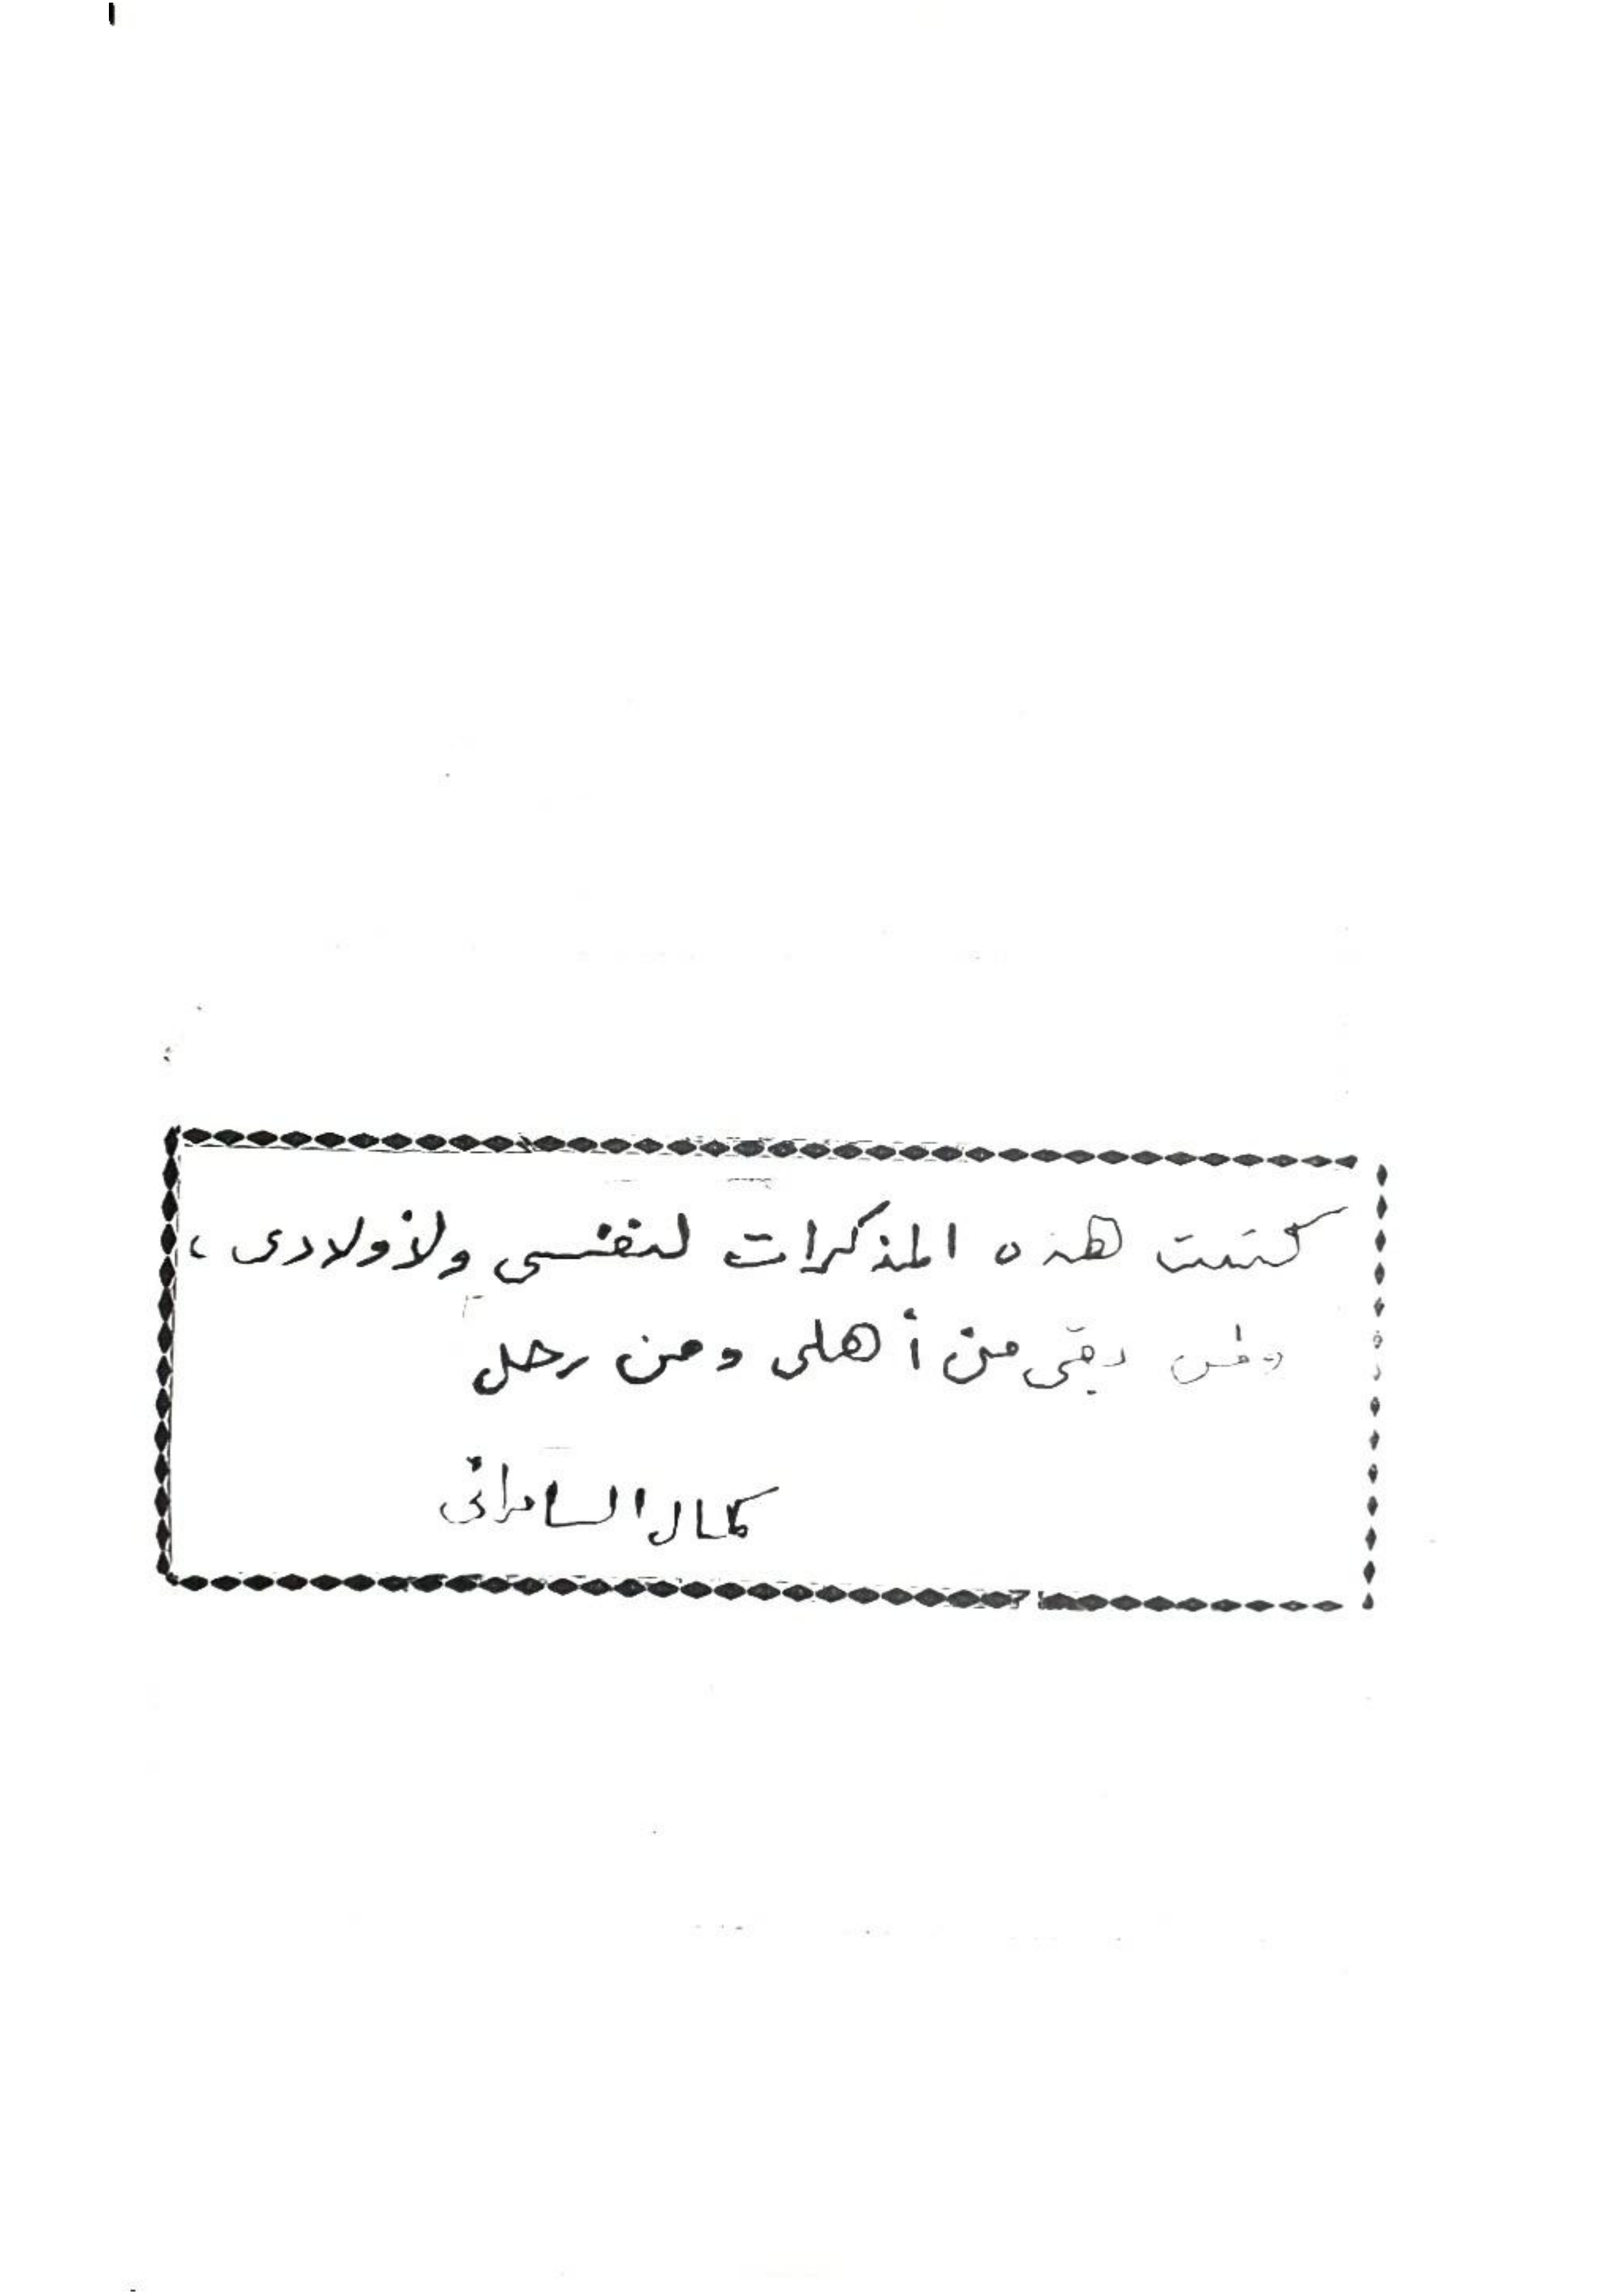 كتبت هذه المذكرات لنفسى ولأولادى ،
ولمن بقى من أهلى ومن رحل
كمال السامرائى